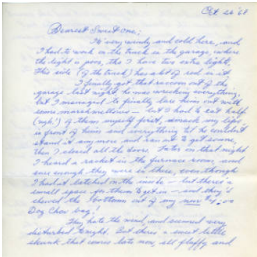 Oct 26 '68
Dearest Sweet one,
It very windy and cold here, and
I had to work in the truck in the garage where
the light is poor, tho I have two extra lights.
This side (of the truck) has a lot of rust in it.
I finally got that raccoon out of the
garage last night. He was wrecking everything,
but I managed to finally lure him out with
some marshmallows - but I had to eat half
(ugh!) of them myself first, smack my lips
in front of him and everything til he couldn't
stand it anymore and ran out to get some,
then I closed all the doors. Later on that night
I heard a racket in the furnace room and
sure enough they were in there, even though
I had it latched on the inside - but there's a
small space for them to get in - and they'd
chewed the bottom out of my new
Dog Chow bag!
They hate the wind, and seemed very
disturbed tonight. But there's a sweet little
skunk that comes late now, all fluffy and